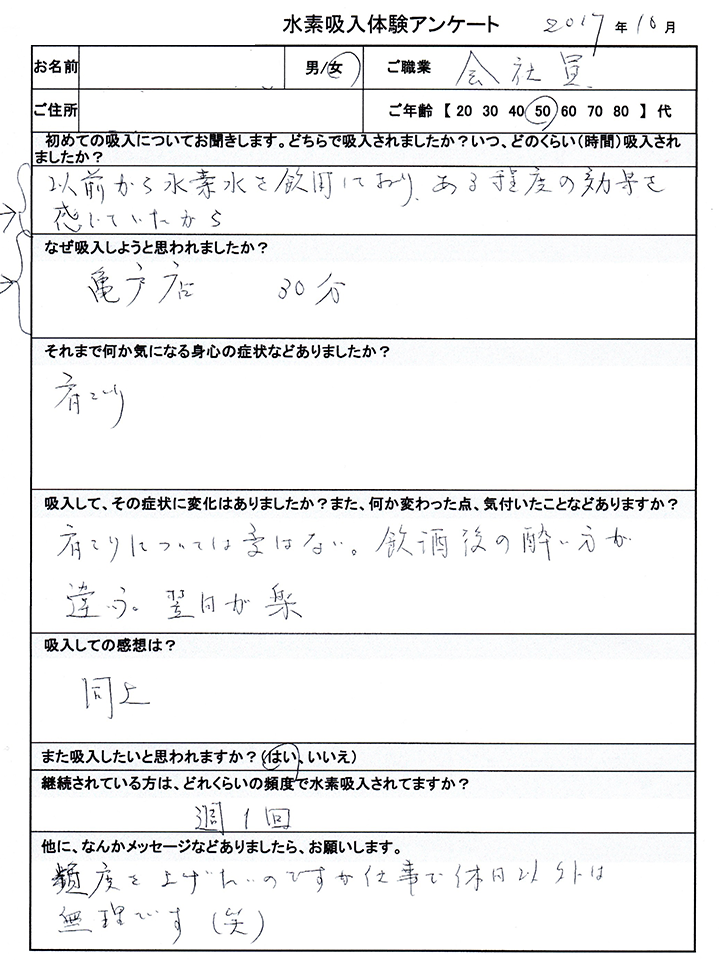 水素吸入体験アンケート 2017年10月
お名前 男/女 ご職業 会社員
ご住所 ご年齢【 20 30 40 50 60 70 80 】代
初めての吸入についてお聞きします。どちらで吸入されましたか？いつ、どのくらい（時間）吸入され
ましたか？
以前から水素水を飲用しており、ある程度の効果を
感じていたから
なぜ吸入しようと思われましたか？
亀戸店 30分
それまで何か気になる身心の症状などありましたか？
肩こり
吸入して、その症状に変化はありましたか？また、何か変わった点、気付いたことなどありますか？
肩こりについては変はない。飲酒後の酔い方が
違う。翌日が楽
吸入しての感想は？
同上
また吸入したいと思われますか？（はい、いいえ）
継続されている方は、どれくらいの頻度で水素吸入されてますか？
週1回
他に、なんかメッセージなどありましたら、お願いします。
頻度を上げたいのですが仕事で休日以外は
無理です（笑）